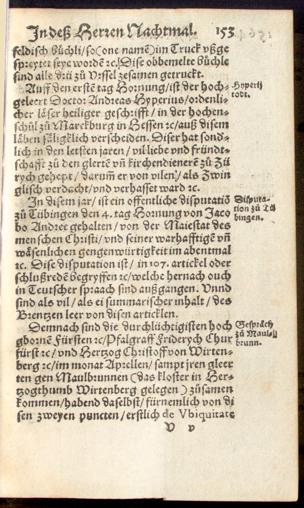 In deß Herren Nachtmal. 153
feldisch büchli / so one namē im Truck vßge
spreytet seye wordē ꝛc. Dise obbemelte büchle
sind alle drü zů Vrsel zesamen getruckt.
Auff den erst tag Hornung / ist der hoch-
geleert Doctor Andreas Hyperius / ordenli-
cher läser heiliger geschrifft / in der hochen-
schůl zů Marckburg in Hessen ꝛc / auß disem
läben säligklich verscheiden. Diser hat sond-
lich in den letsten jaren / vil liebe vnd fründt-
schafft zů den glertē vñ kirchendienerē zů Zü
rych gehept / darum̄ er von vilen / als Zwin
glisch verdacht / vnd verhasset ward ꝛc.
Hyperij
todt.
In disem jar / ist ein offentliche disputatiō
zů Tübingen den 4. tag Hornung von Jaco
bo Andree gehalten / von der Maiestat des
menschen Christi / vnd seiner warhafftigē vñ
wäsenlichen gegenwürtigkeit im abentmal
ꝛc. Dise disputation ist / in 107. artickel oder
schlußredē begryffen ꝛc / welche hernach ouch
in Teutscher spraach sind außgangen. Vnnd
sind als vil / als ei summarischer inhalt / des
Brentzen leer von disen articklen.
Disputa-
tion zů Tü
bingen.
Demnach sind die durchlüchtigisten hoch
gbornē Fürsten ꝛc / Pfalgraff Friderych Chur
fürst ꝛc / vnd Hertzog Christoff von Wirten-
berg ꝛc / im monat Aprellen / sampt jren gleer
ten gen Maulbrunnen (das kloster in Her-
tzogthumb Wirtenberg gelegen) zůsamen
kommen / habend daselbst / fürnemlich von di
sen zweyen puncten / erstlich de Vbiquitate
Gespräch
zů Maulbrunn.
V v